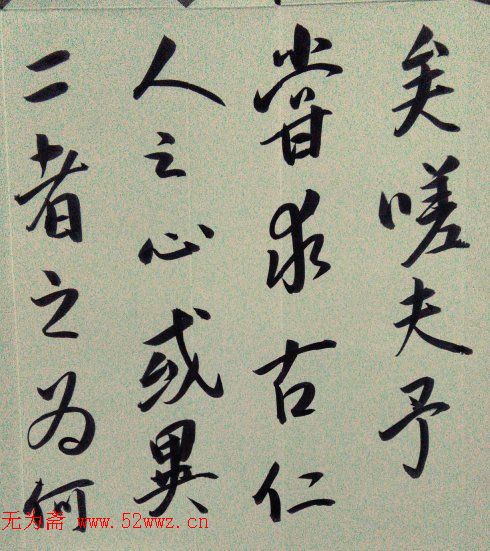 矣嗟夫予
嘗求古仁
人之心或異
二者之为何
无为斋 www.52wwz.cn